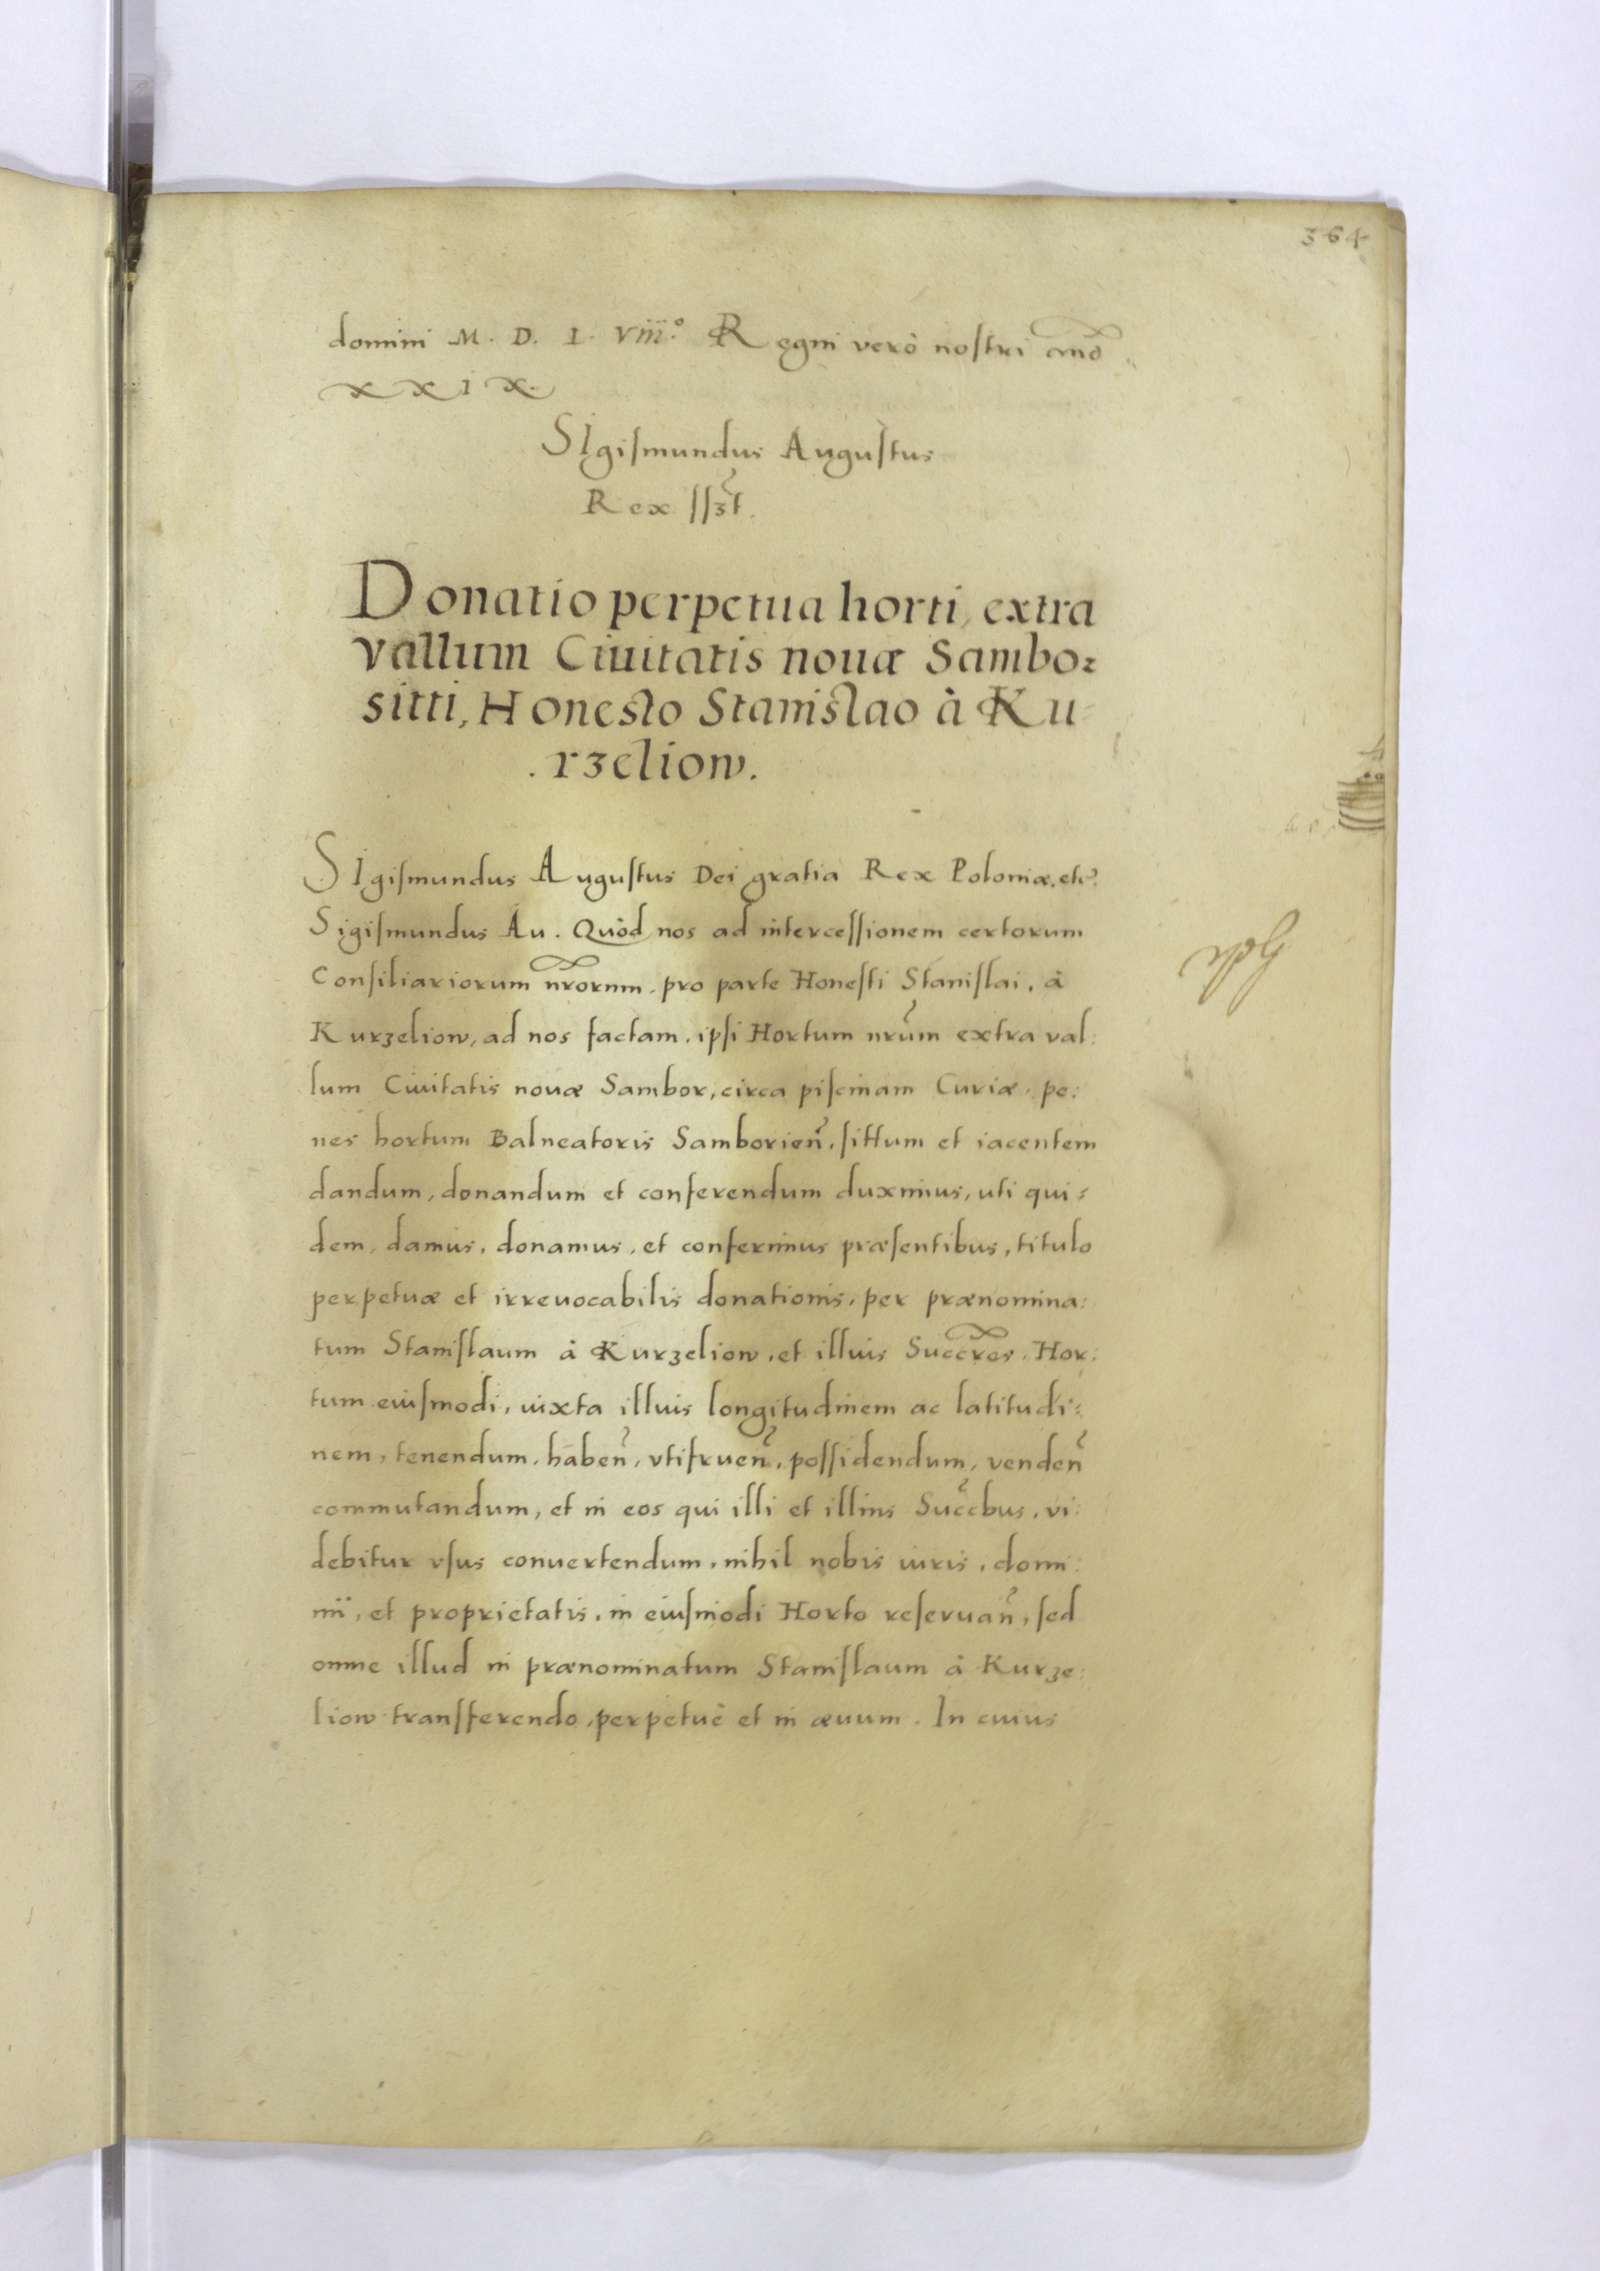 364
domini M. D. L. VIII.º Regni verò nostri anō
XXIX.
SIgismundus Augustus
Rex sszt.
Donatio perpetua horti, extra
vallum Ciuitatis nouæ Sambor
sitti, Honesto Stanislao à Ku
. rzeliow.
SIgismundus Augustus Dei gratia Rex Poloniæ, etc.
Sigismundus Au. Quòd nos ad intercessionem certorum
Consiliariorum nrorum, pro parte Honesti Stanislai, à
Kurzeliow, ad nos factam, ipsi Hortum nrūm extra val:
lum Ciuitatis nouæ Sambor, circa piscinam Curiæ, pe:
nes hortum Balneatoris Samborien̄, sittum et iacentem
dandum, donandum et conferendum duximus, uti qui:
dem, damus, donamus, et conferimus præsentibus, titulo
perpetuæ et irreuocabilis donationis, per prænomina:
tum Stanislaum à Kurzeliow, et illius Succr̄es, Hor:
tum eiusmodi, iuxta illius longitudinem ac latitudi:
nem, tenendum, haben̄, vtifruen̄, possidendum, venden̄
commutandum, et in eos qui illi et illius Succ̄bus, vi:
debitur vsus conuertendum, nihil nobis iuris, domi:
nii, et proprietatis, in eiusmodi Horto reseruan̄, sed
omne illud in prænominatum Stanislaum à Kurze:
liow transferendo, perpetuè et in æuum. In cuius